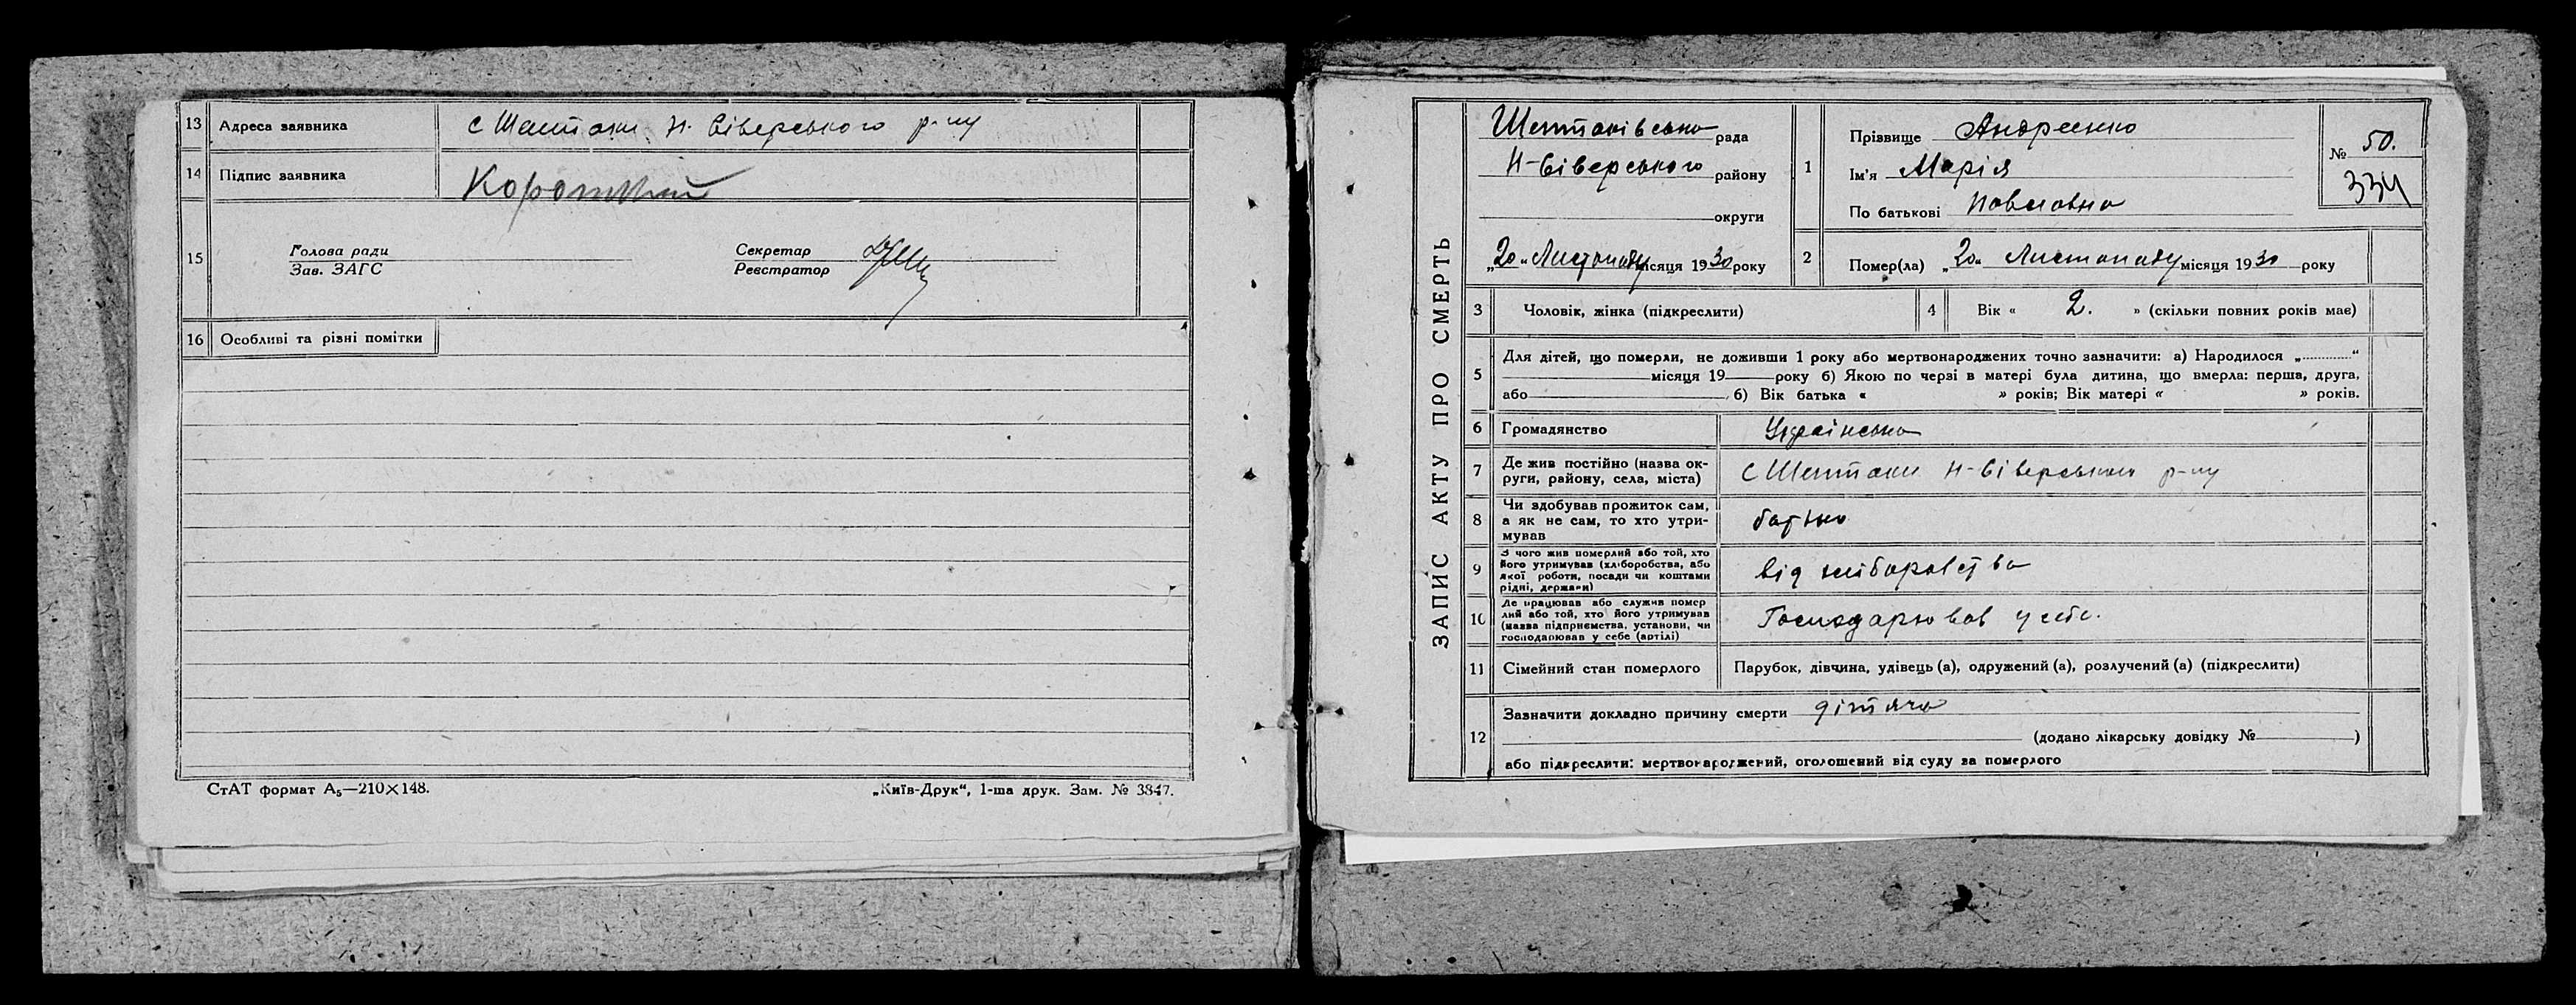 13 Адреса заявника с Шептаки Н. Сіверського р-ну
14 Підпис заявника Короткий
15 Голова ради
Зав. ЗАГС
Секретар
Реєстратор
16 Особливі та різні помітки
СтАТ формат А₅—210×148.
„Київ-Друк“, 1-ша друк. Зам. № 3847.
ЗАПИС АКТУ ПРО СМЕРТЬ
Шептаківська рада
Н-Сіверського району
округи
„20“ Листопаду місяця 1930 року
1 Прізвище Андреенко
Ім'я Марія
По батькові Павловна
№ 50.
334
2 Помер(ла) „20“ Листопаду місяця 1930 року
3 Чоловік, жінка (підкреслити)
4 Вік « 2. » (скільки повних років має)
5 Для дітей, що померли, не доживши 1 року або мертвонароджених точно зазначити: а) Народилося „............“
місяця 19 року б) Якою по черзі в матері була дитина, що вмерла: перша, друга,
або б) Вік батька « » років; Вік матері « » років.
6 Громадянство Українська
7 Де жив постійно (назва ок-
руги, району, села, міста) с Шептаки Н-Сіверського р-ну
8 Чи здобував прожиток сам,
а як не сам, то хто утри-
мував батько
9 З чого жив померлий або той, хто
його утримував (хліборобства, або
якої роботи, посади чи коштами
рідні, держави) від хліборобства
10 Де працював або служив помер
лий або той, хто його утримував
(назва підприємства, установи, чи
господарював у себе (артілі) Господарював у себе.
11 Сімейний стан померлого Парубок, дівчина, удівець (а), одружений (а), розлучений (а) (підкреслити)
12 Зазначити докладно причину смерти дітяча
(додано лікарську довідку № )
або підкреслити: мертвонароджений, оголошений від суду за померлого